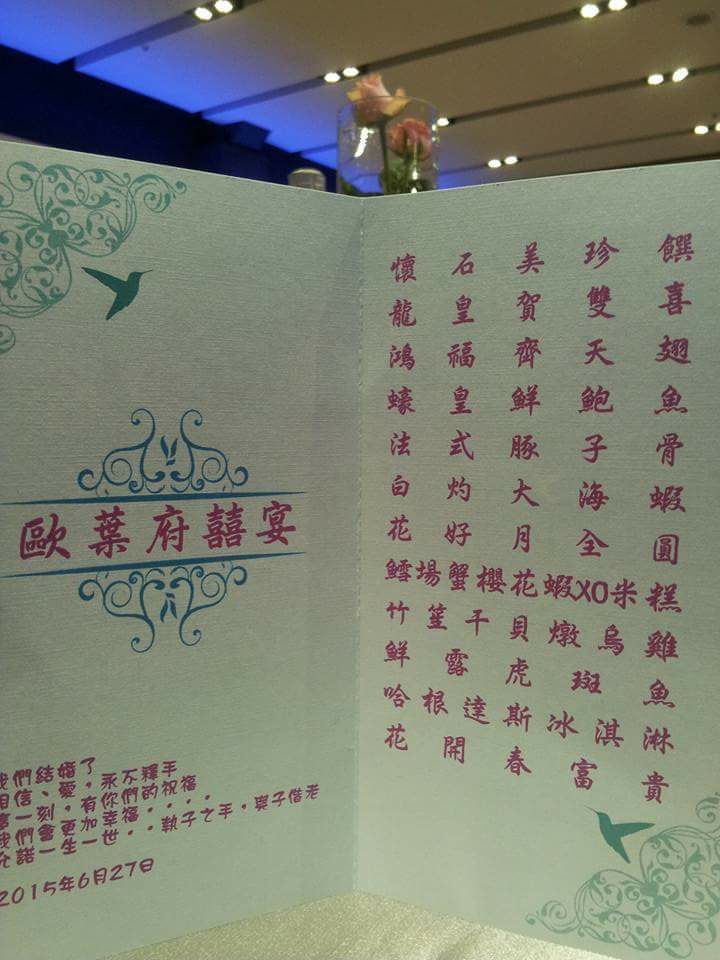 歐葉府囍宴
我們結婚了
相信、愛，永不釋手
一刻，有你們的祝福
我們會更加幸福....
允諾一生一世..執子之手，與子偕老
2015年6月27日
懷石美珍饌
龍皇賀雙喜
鴻福齊天翅
蠔皇鮮鮑魚
法式豚子骨
白灼大海蝦
花好月全圓
鱈場蟹櫻花蝦XO米糕
竹笙干貝燉烏雞
鮮露虎斑魚
哈根達斯冰淇淋
花開春富貴